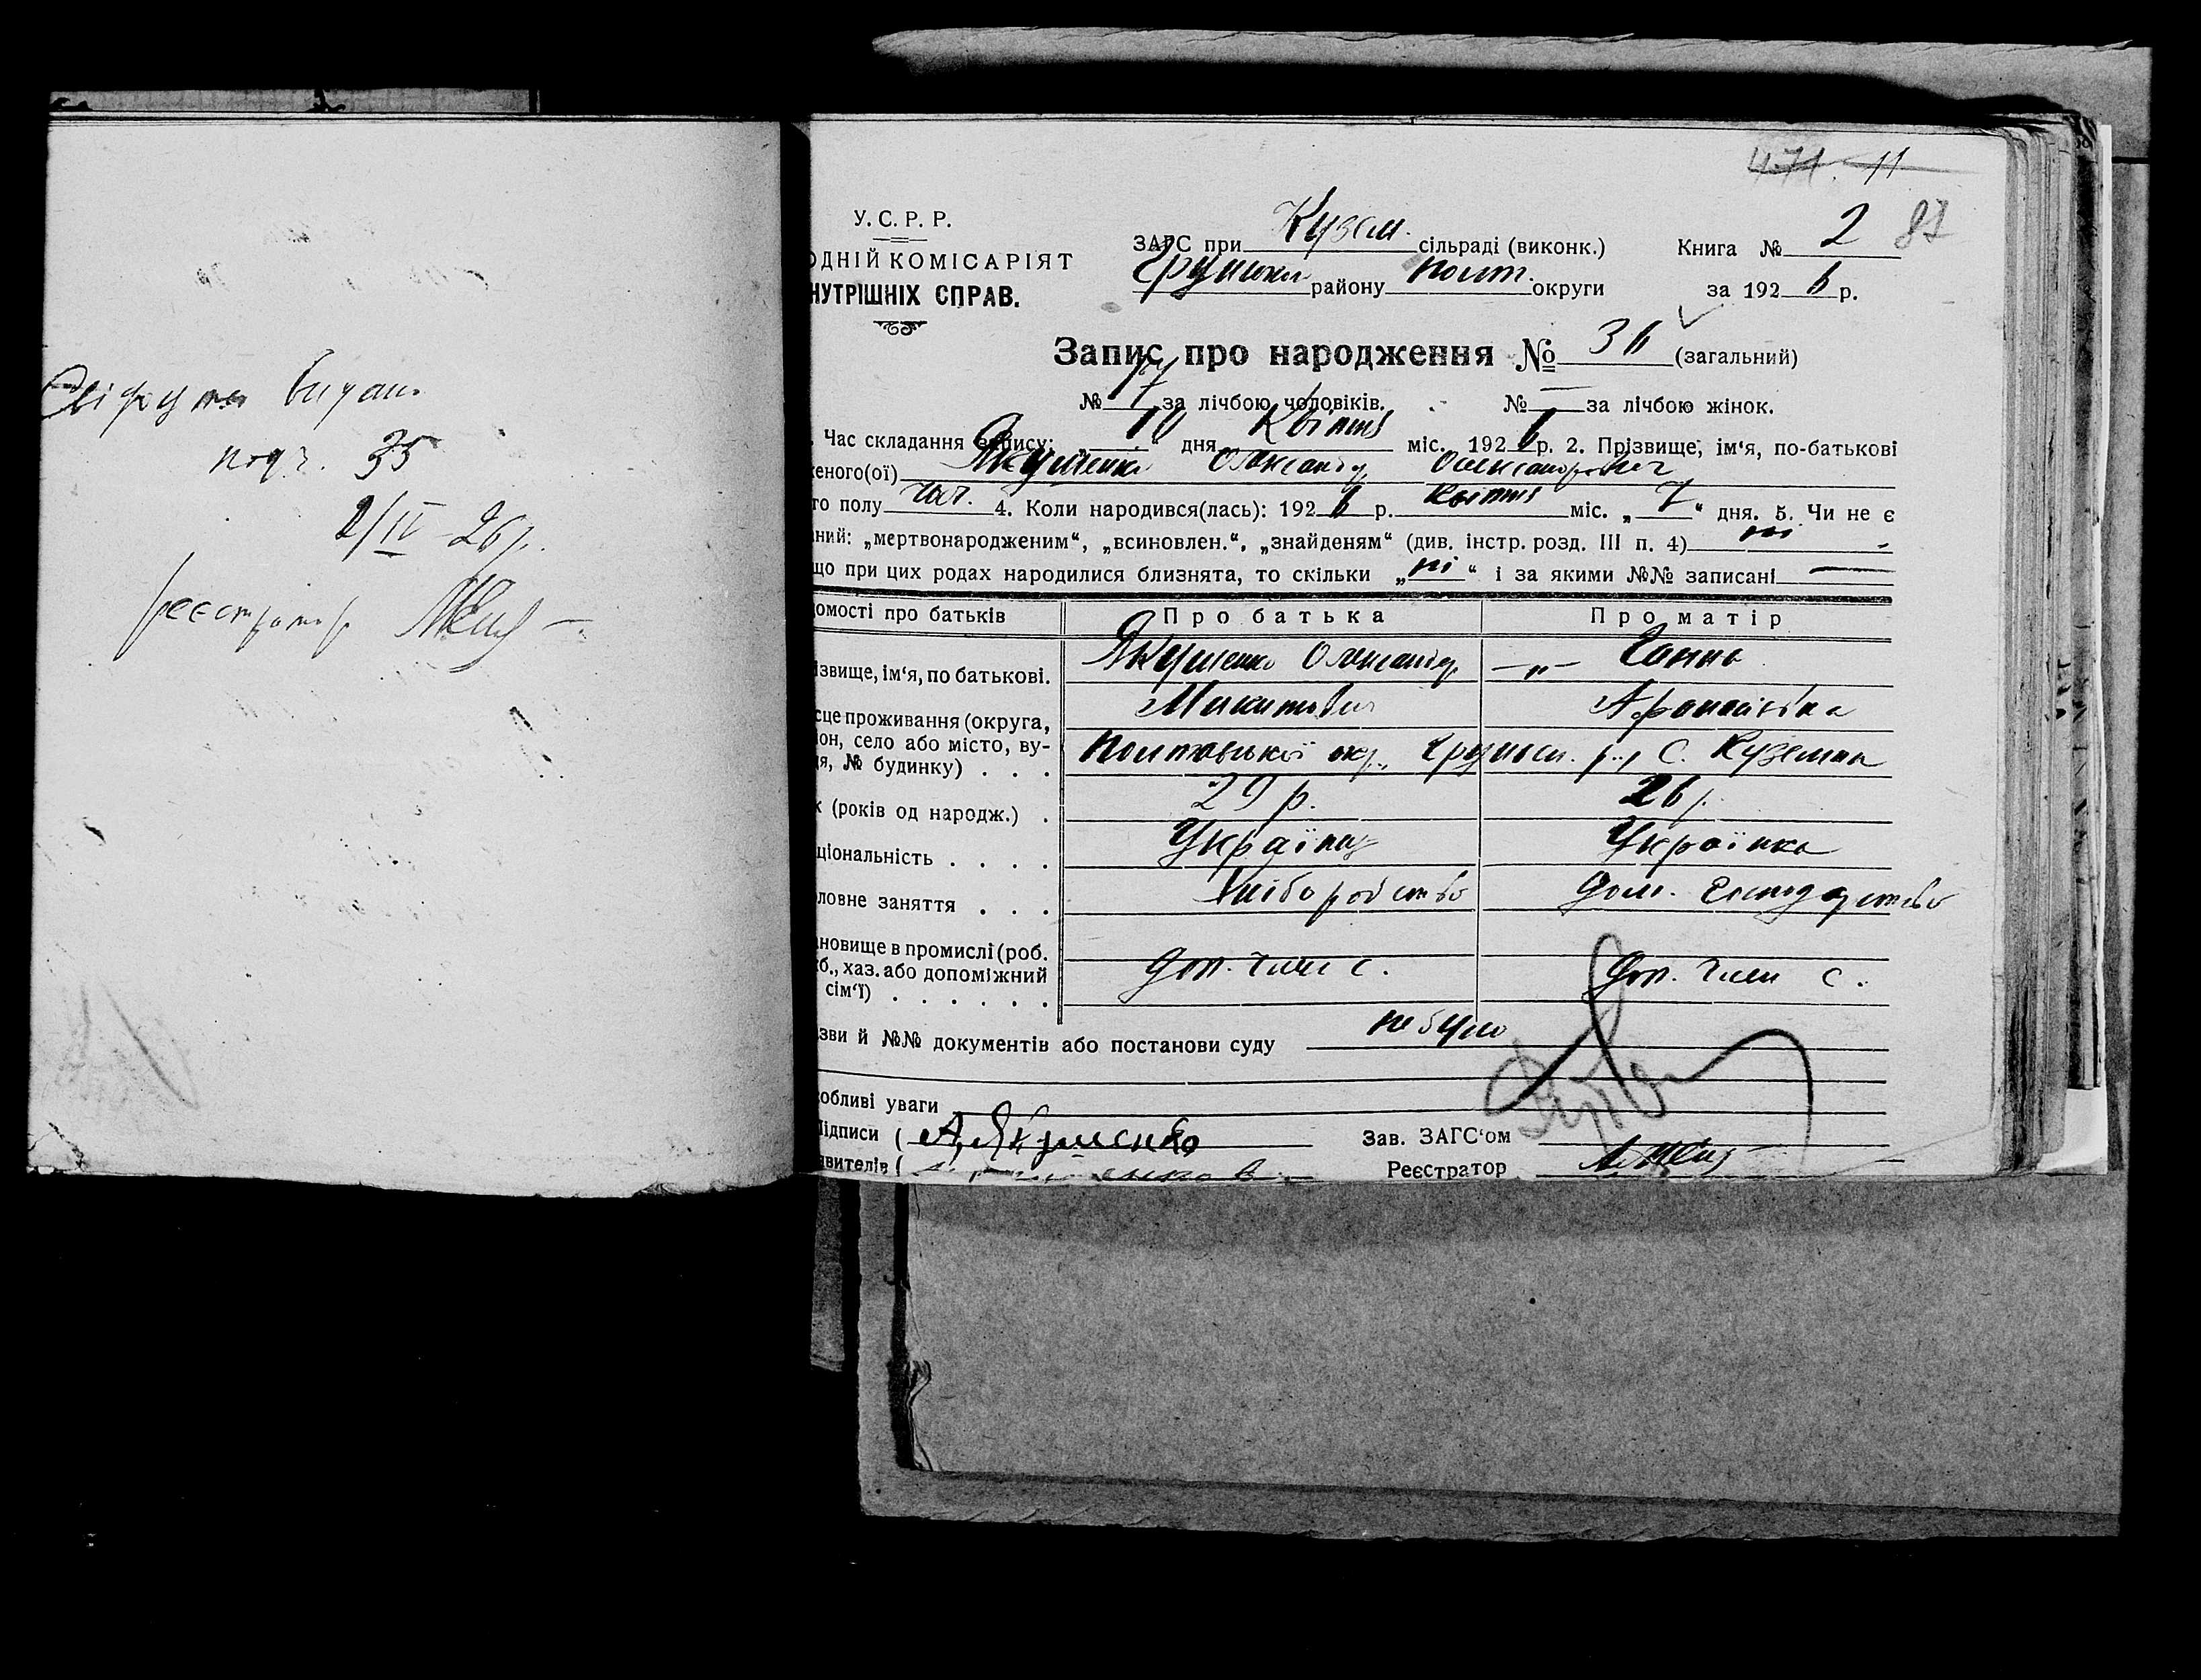 видано
під ч. 35
2/IV-26 р.
реєстратор
471. 11
87
У.С.Р.Р.
ОДНІЙ КОМІСАРІЯТ
НУТРІШНІХ СПРАВ.
ЗАГС при Кузем. сільраді (виконк.)
району Полт. округи
Книга № 2
за 1926 р.
Запис про народження № 36 (загальний)
№ 17 за лічбою чоловіків. № — за лічбою жінок.
. Час складання запису: „10“ дня Квітня міс. 1926 р. 2. Прізвище, ім‘я, по-батькові
женого(ої) Якущенко Олександр Олександрович
го полу чол. 4. Коли народився(лась): 1926 р. Квітня міс. „7“ дня. 5. Чи не є
аний: „мертвонародженим“, „всиновлен.“, „знайденям“ (див. інстр. розд. III п. 4) ні
що при цих родах народилися близнята, то скільки „ні“ і за якими №№ записані —
омості про батьків Про батька Про матір
ізвище, ім‘я, по батькові. Якущенко Олександр —„— Ганна
Микитович Афанасівна
сце проживання (округа,
он, село або місто, ву-
я, № будинку) . . . Полтавської окр., Грунськ. р., С. Куземин
к (років од народж.) . 29 р. 26 р.
ціональність . . . . Українець Українка
ловне заняття . . . Хліборобство Дом. Господарство
ановище в промислі (роб.
б., хаз. або допоміжний
сім‘ї) . . . . . . Доп. член с. Доп. член с.
зви й №№ документів або постанови суду не було
обливі уваги
Підписи ( А. Якущенко Зав. ЗАГС‘ом
явителів ( Реєстратор